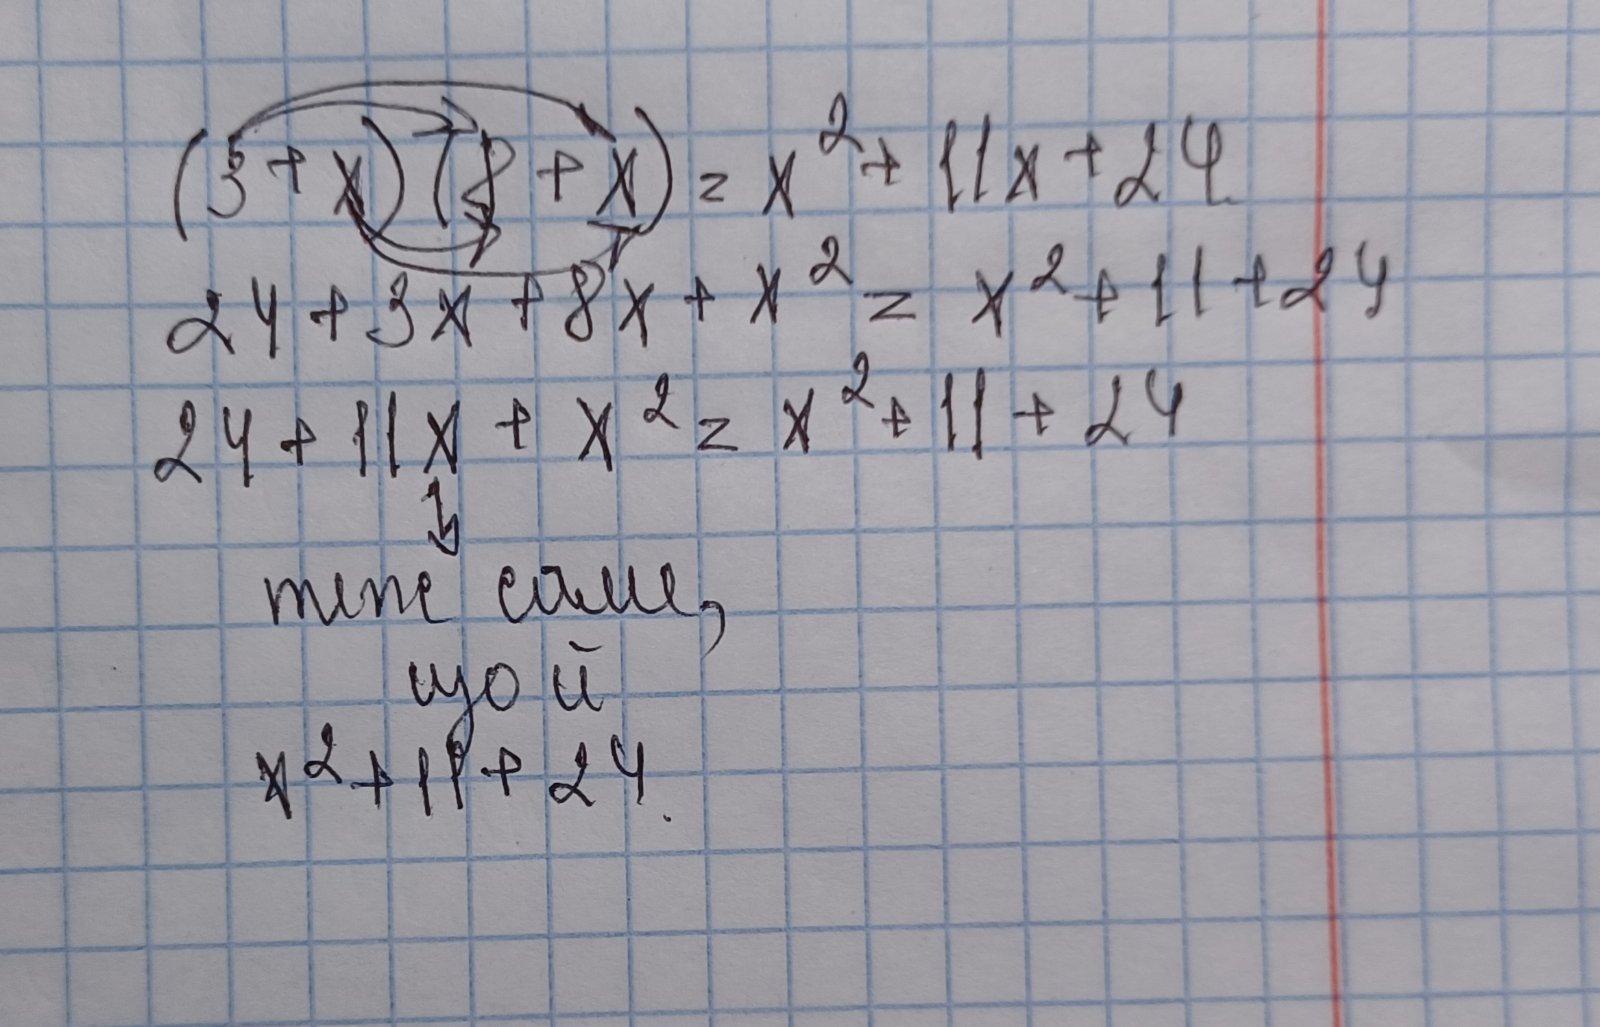 (3 + x) (8 + x) = x² + 11x + 24
24 + 3x + 8x + x² = x² + 11 + 24
24 + 11x + x² = x² + 11 + 24
↓
те саме,
що й
x² + 11 + 24.